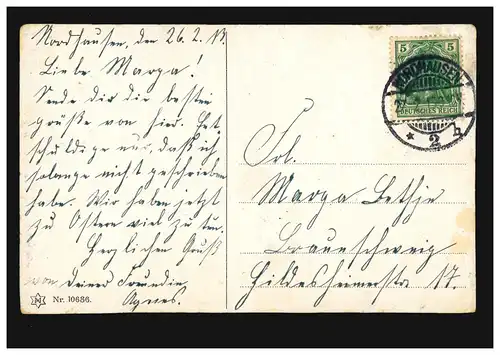 Nordhausen, den 26.2.13.
Liebe Marga!
Sende dir die besten
grüße von hier. Ent
schuldige nur, daß ich
solange nicht geschrieben
habe. Wir haben jetzt
zu Ostern viel zu tun.
Herzlichen Gruß
von Deiner Freundin
Agnes.
Nr. 10686.
5 5
DEUTSCHES REICH
NORDHAUSEN
* 2
Frl.
Marga Bethje
Braunschweig
Hildesheimerstr. 17.